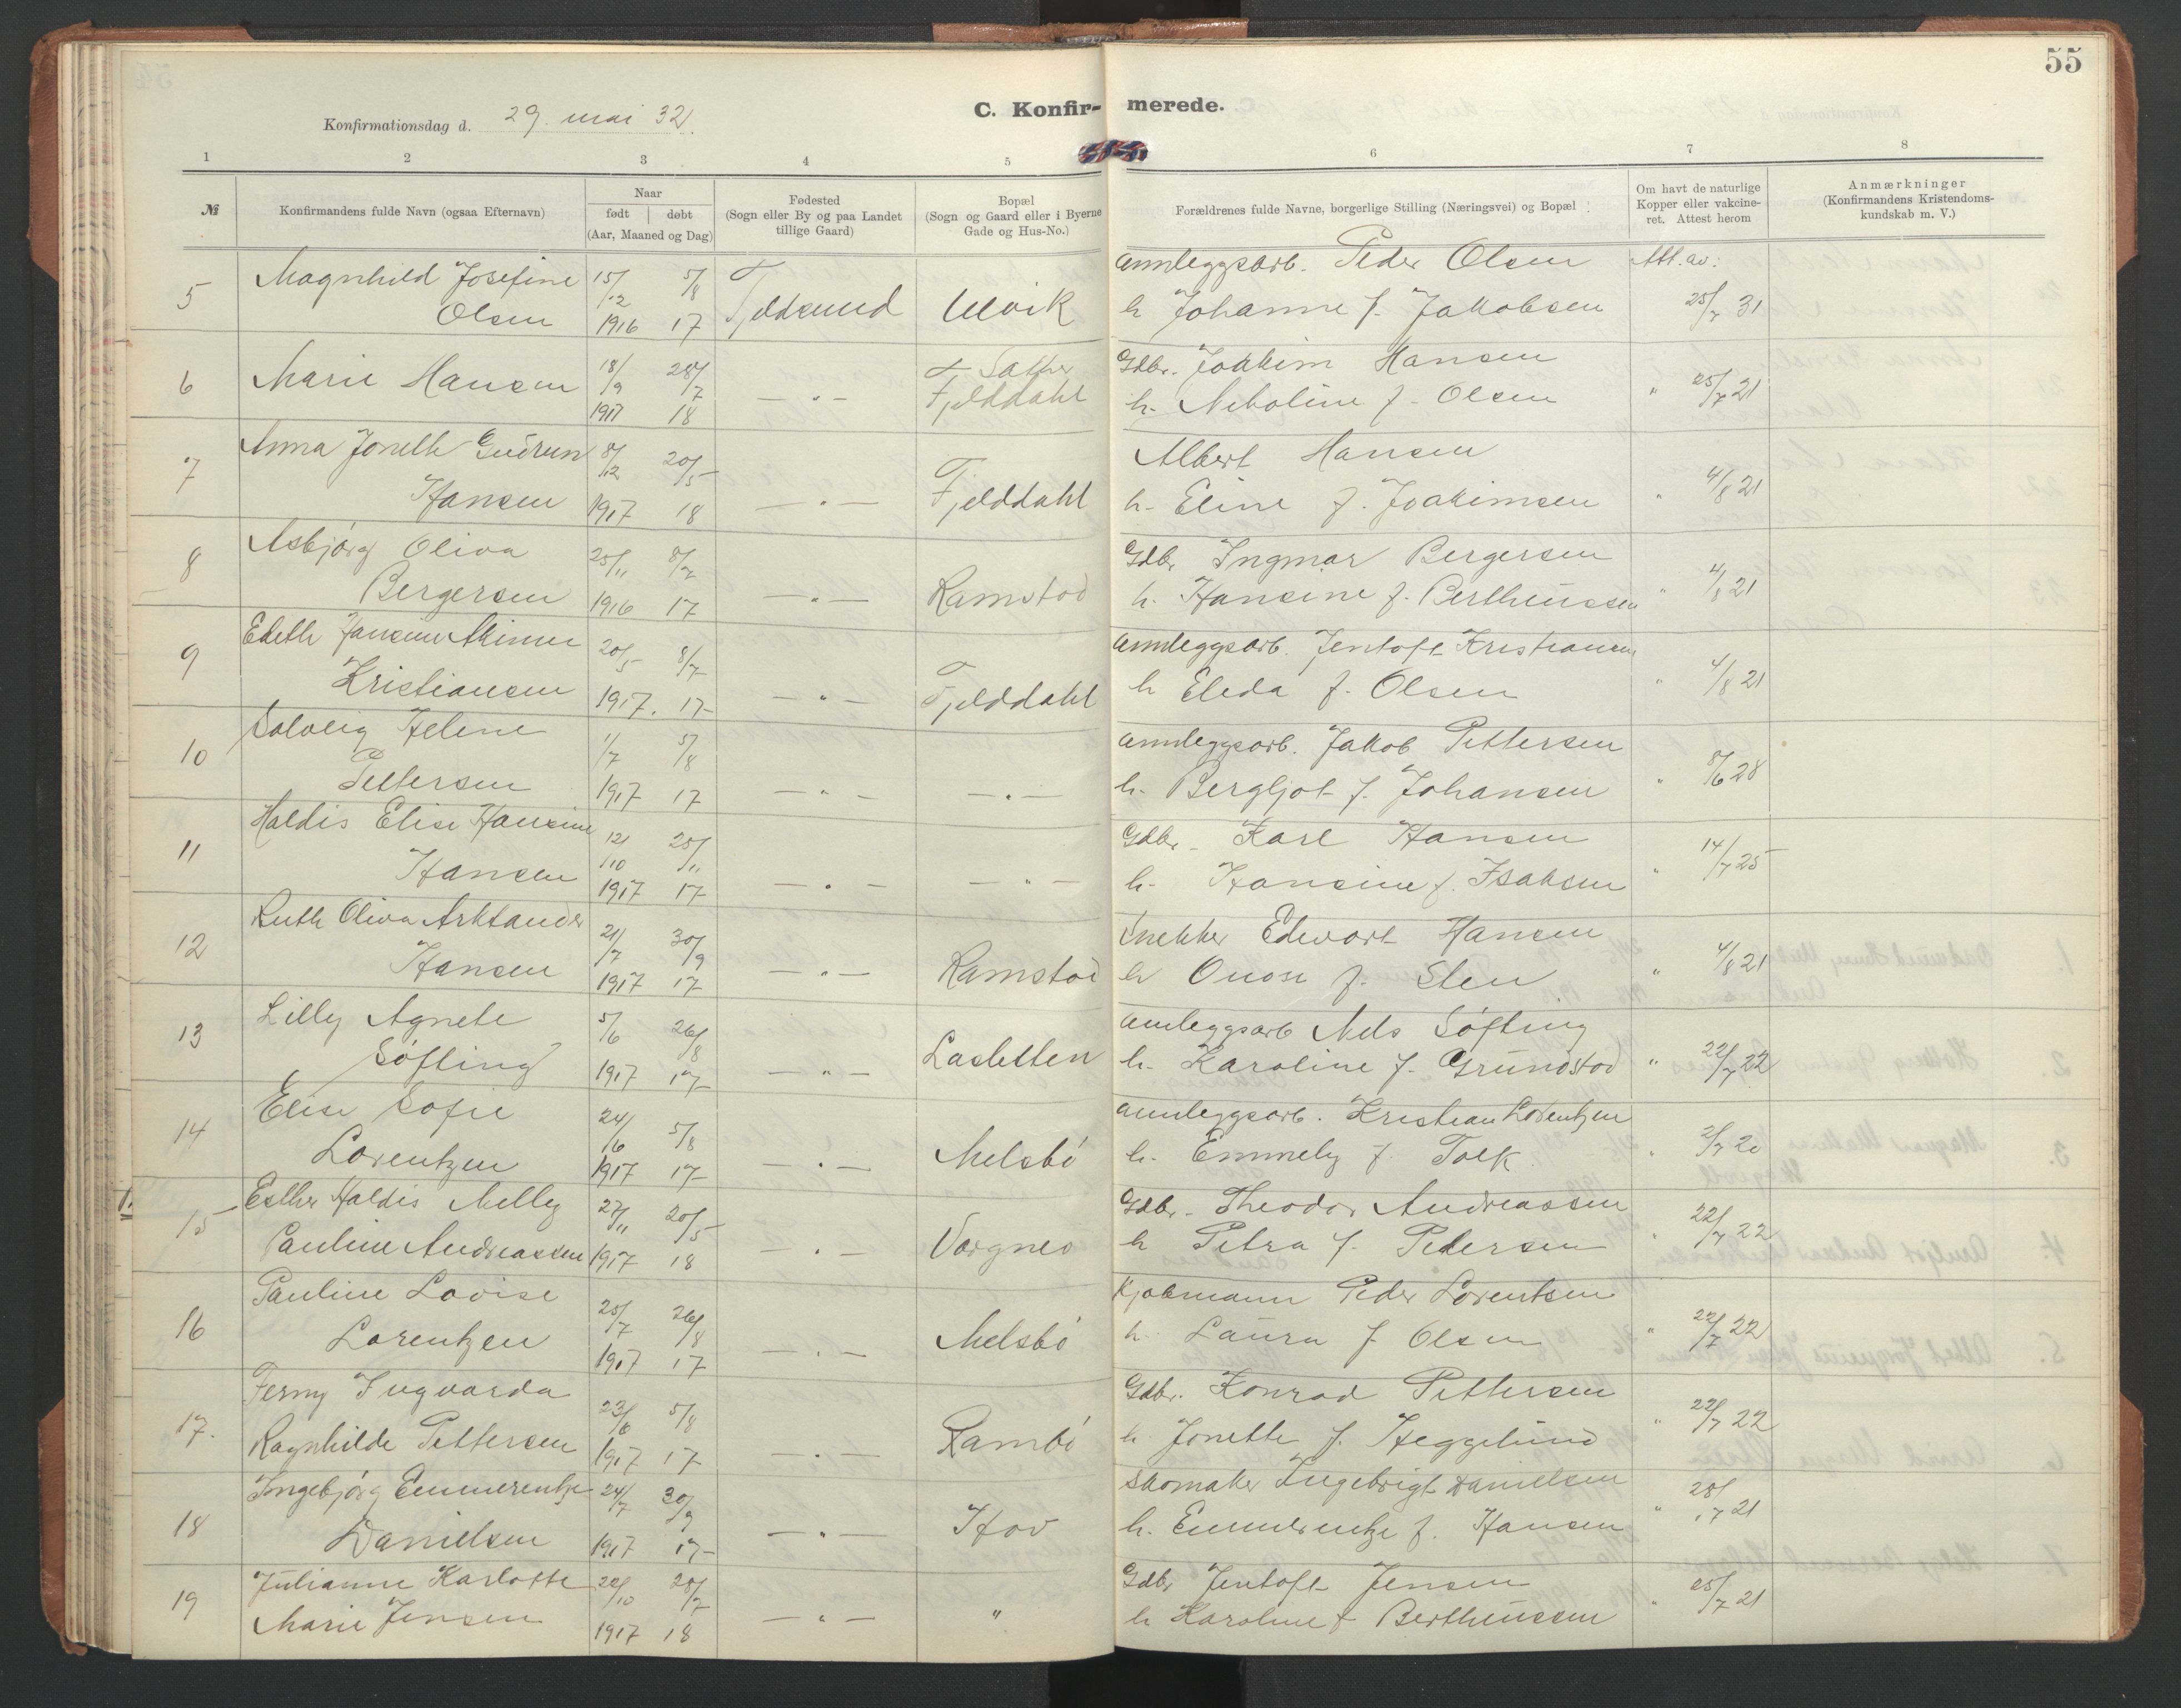 55
C. Konfir- merede.
Konfirmationsdag d. 29. mai 32.
1 2 3 4 5 6 7 8
№
Konfirmandens fulde Navn (ogsaa Efternavn)
Naar
født døbt
(Aar, Maaned og Dag)
Fødested
(Sogn eller By og paa Landet
tillige Gaard)
Bopæl
(Sogn og Gaard eller i Byerne
Gade og Hus-No.)
Forældrenes fulde Navne, borgerlige Stilling (Næringsvei) og Bopæl
Om havt de naturlige
Kopper eller vakcine-
ret. Attest herom
Anmærkninger
(Konfirmandens Kristendoms-
kundskab m. V.)
Magnhild Josefine 15/12 5/8 annleggsarb. Peder Olsen Att. av:
5 Olsen 1916 17 Fjeldsund Ulvik h Johanne f. Jakobsen 25/7 31
18/9 28/7 Gdbr. Joakim Hansen
6 Marie Hansen 1917 18 — " — Fjelddahl h. Nikoline f. Olsen " 25/7 21
Anna Jonette Gudrun 8/12 20/5 Albert Hansen
7 Hansen 1917 18 — " — Fjelddahl h. Eline f. Joakimsen " 4/8 21
Asbjørg Oliva 25/11 8/7 Gdbr. Ingmar Bergersen
8 Bergersen 1916 17 — " — Ramstad h. Hansine f. Bertheussen " 4/8 21
Edeth Hansine 20/5 8/7 annleggsarb. Jentoft Kristiansen
9 Kristiansen 1917. 17 — " — Fjelddahl h Elida f. Olsen " 4/8 21
Solveig Helene 1/7 5/8 annleggsarb. Jakob Pettersen
10 Pettersen 1917 17 — " — — " — h. Bergljot f. Johansen " 8/6 28
Haldis Elise Hansine 12/10 25/11 Gdbr. Karl Hansen
11 Hansen 1917 17 — " — — " — h. Hansine f. Isaksen " 14/7 25
Ruth Oliva Arktander 21/7 30/9 Snekker Edvart Hansen
12 Hansen 1917 17 — " — Ramstad h f. Sten " 4/8 21
Lilly Agnete 5/6 26/8 annleggsarb Nels Søfting
13 Søfting 1917 17 — " — Lasletten h. Karoline f. Grundstad " 22/7 22
Elise Sofie 24/6 5/8 annleggsarb. Kristian Lorentzen
14 Lorentzen 1917 17 — " — Melsbø h. Emmely f. Falk " 2/7 20
Esther Haldis Melley 27/11 20/5 Gdbr. Theodor Andreassen
15 Pauline Andreassen 1917 18 — " — Vargnes h Petra f. Pedersen " 22/7 22
Pauline Lovise 25/7 26/8 Kjøbmann Peder Lorentsen
16 Lorentzen 1917 17 — " — Melsbø h. Laura f Olsen " 22/7 22
Ferny Ingvarda 23/6 5/8 Gdbr. Konrad Pettersen
17. Ragnhilde Pettersen 1917 17 — " — Rambø h Jonette f. Heggelund " 22/7 22
Ingebjørg Emmerentze 24/7 30/9 Skomaker Ingebrigt Danielsen
18 Danielsen 1917 17 — " — Hov h. Emmerentze f. Hansen " 28/7 21
Julianne Karlotte 22/10 28/7 Gdbr Jentoft Jensen
19 Marie Jensen 1917 18 — " — " h Karoline f Bertheussen " 25/7 21